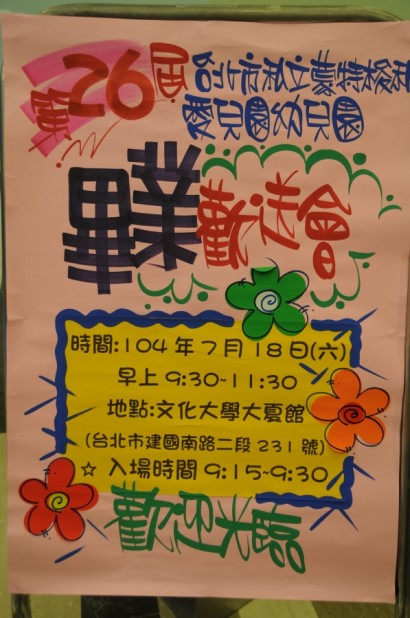 第26屆
台北市私立蒙特梭利
愛兒園幼兒園
畢業歡送會
時間:104年7月18日(六)
早上9:30~11:30
地點:文化大學大夏館
(台北市建國南路二段231號)
☆ 入場時間9:15~9:30
歡迎光臨